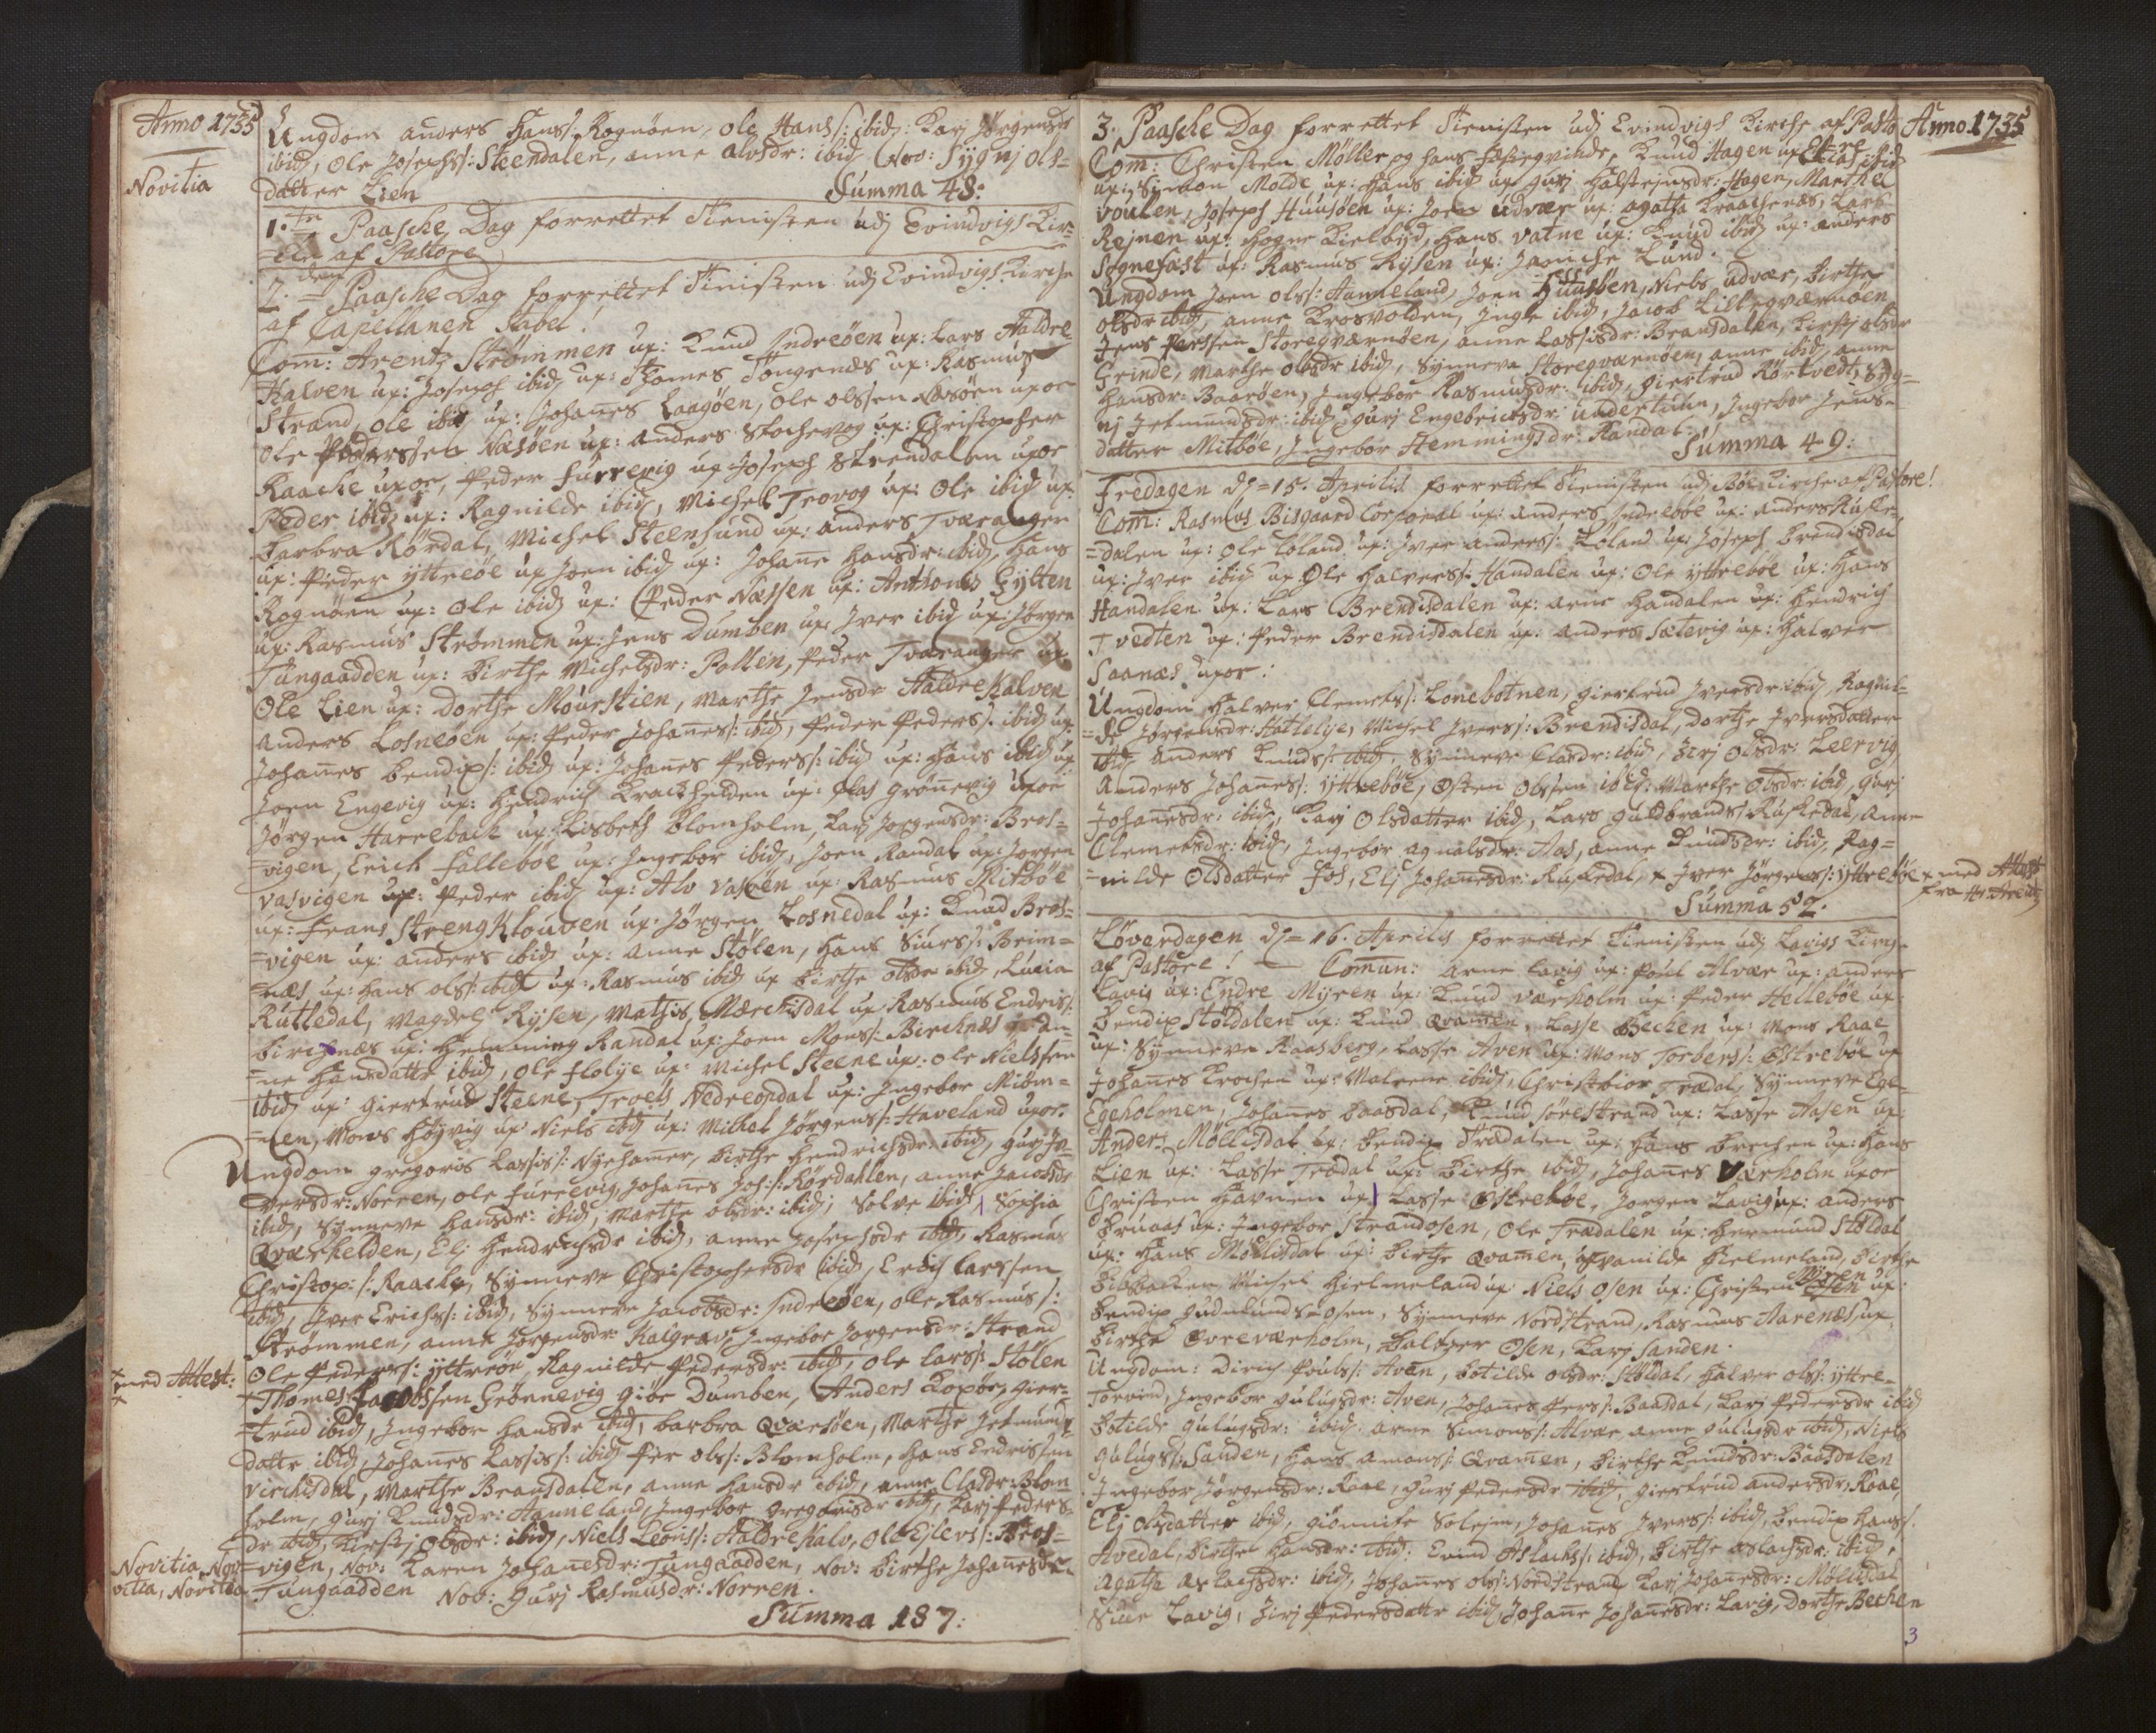 Anno 1735
Novitia
Ungdom anders Hans/: Rognøen, ole Hans/: ibid: Karj Jørgensdr
ibid, Ole Josephs/: Steendalen, anne alvsdr: ibid Nov: Sygnj ols=
datter Lien Summa 48:
1.ste Paasche Dag forrettet Tienisten udj Evindvigs Kir=
=che af Pastore
2.den Paasche Dag forrettet Tienisten udj Evindvigs Kirche
af Capellanen Abel!
Com: Arentz Strømmen ux: Knud Indreøen ux: Lars Haldre
Halven ux: Joseph ibid ux: Thomes Tongenæs ux: Rasmus
Strand, ole ibid ux: Johanes Laagøen, ole olssen Nasøen uxor
ole Pederssen Nasøen ux: anders Stochevog ux: Christopher
Raache uxor, Peder Furrevig ux: Joseph Steendalen uxor
Peder ibid ux: Ragnilde ibid, Michel Trovog ux: Ole ibid ux:
barbra Rørdal, Michel Steensund ux: anders Tværanger
ux: Peder ytterøe ux Joen ibid ux: Johane Hansdr: ibid, Hans
Rognøen ux: Ole ibid ux: Peder Næssen ux: Anthonis Gylten
ux: Rasmus Strømmen ux: Jens Dumben ux Iver ibid ux: Jørgen
Tungaadden ux: birthe Michelsdr: Pollen, Peder Tværanger ux
Ole Lien ux: Dorthe Mourstien, Marthe Jensdr HaldreHalven
Anders Losneøen ux: Peder Johanes/: ibid, Peder Peders/: ibid ux
Johanes bendix/: ibid ux: Johanes Peders/: ibid ux: Hans ibid ux
Joen Engevig ux: Hendrich Krackhelden ux: Olas Grønevig uxor
Jørgen Harrebach ux: Lisbeth Blomholm, Karj Jørgensdr: Bros=
=vigen, Erich Fallebøe ux: Ingebor ibid, Joen Randal ux: Jørgen
vasvigen ux: Peder ibid ux: Alv Vasøen ux: Rasmus Mitbøe
ux: Frans StrengKlouven ux: Jørgen Losnedal ux: Knud Bros=
=vigen ux: anders ibid ux: anne Stølen, Hans Siurs/: Brim=
=næs ux: Hans ols/: ibid ux: Rasmus ibid ux birthe olsdr ibid, Lucia
Rutledal, Magdelj Rysen, Mathis Mærchisdal ux Rasmus Endris/:
birchnæs ux: Hemming Randal ux: Joen Mons/: Birchnæs, an=
=ne Hansdattr ibid, ole Flolye ux: Michel Steene ux: ole Nielssen
ibid ux: Giertrud Steene, Troels Nedreopdal ux: Ingebor Miøm=
=nen, Mons Høyvig ux Niels ibid ux: Mickel Jørgens/: Haveland uxor
Ungdom gregoris Lassis/: Nyehamer, birthe Hendrichsdr: ibid, Gurj Jv=
versdr: Norren, ole Furrevig, Johanes Joh:/: Rørdahlen, anne Jacobsdr
ibid, Synneve Hansdr: ibid, Marthe olsdr: ibid, Solve ibid, Sophia
Qværhelden, Elj Hendrichsdr ibid, anne Josephsdr ibid, Rasmus
Christop:/: Raache, Synneve Christophersdr ibid, Erich Larssen
ibid, Iver Erichs/: ibid, Synneve Jacobsdr: Indreøen, ole Rasmus/:
Strømmen, anne Jørgensdr Kalgrav, Ingebor Jørgensdr: Strand
+ med Attest:
Ole Peders/: ytterøe, Ragnilde Pedersdr: ibid, ole Lars/: Stølen
Thomes Jacobssen Grønnevig Giøe Dumben, Anders Kopøe, gier=
=trud ibid, Ingebor Hansdr ibid, barbra Qværøen, Marthe Jetmunds
dattr ibid, Johanes Lassis/: ibid Per ols/: Blomholm, Hans Endrissen
Virchisdal, Marthe Bransdalen, anne Hansdr ibid, anne Clasdr: Blom
holm, Gurj Knudsdr: Hanneland, Ingebor Gregorisdr ibid, Karj Peders=
dr ibid, Kirstj olsdr: ibid, Niels Leons/: Haldre Kalv, ole Ejlers/: Bros=
Novitia, No=
vitia, Novitia
=vigen, Nov: Karen Johanesdr: Tungaadden, Nov: birthe Johanesdr
Tungaadden Nov: Gurj Rasmusdr: Norren.
Summa 187:
Anno 1735
3. Paasche Dag forrettet Tienisten udj Evindvigs Kirche af Pastore
Com: Christen Møller og hans Festeqvinde, Knud Hagen ux Elias ibid
ux: Simon Molde ux: Hans ibid ux Gurj Halstensdr: Hagen, Marthe
Voulen, Joseph Huusøen ux: Joen udvær ux: agatha Kraachenæs, Lars
Rejnen ux: Hogne Kielbyd, Hans Vatne ux: Knud ibid ux: anders
Sognefæst ux: Rasmus Rysen ux: Janiche Lund.
Ungdom Joen ols/: Hanneland, Joen Huusøen, Niels udvær, birthe
olsdr ibid, anne Krosvolden, Ingle ibid, Jacob Lilleqværnøen
Jens Perssen Storeqværnøen, anne Lassisdr: Bransdalen, Kirstj olsdr
Grinde, Marthe olsdr ibid, Synneva Storeqværnøen, anne ibid, anne
Hansdr: Baarøen, Ingebor Rasmusdr: ibid, giertrud Rørtvedt, Syg=
nj Jetmundsdr: ibid, Gurj Engebrictsdr: undertuhn, Ingebor Jens=
datter Mitbøe, Ingebor Hemmingsdr: Randal. Summa 49:
Fredagen dj=15. Aprilis forrettet Tienisten udj Bøe Kirche af Pastore!
Com: Rasmus Bisgaard Corporal ux: anders Indrebøe ux: anders Ruske=
=dalen ux: Ole Loland ux: Iver anders/: Loland ux: Joseph brendisdal
ux: Iver ibid ux Ole Halvers/: Handalen ux: Ole yttrebøe ux: Hans
Handalen ux: Lars Brendisdalen ux: arne Handalen ux: Hendrich
Tvedten ux: Peder Brendisdalen ux: anders Sætevig ux: Halver
Saanæs uxor:
Ungdom Halver Clemets/: Lonebotnen, giertrud Iversdr: ibid, Ragnil=
=de Jørgensdr: Hatlelye, Michel Ivers/: Brendisdal, Dorthe Iversdatter
ibid, anders Knuds/: ibid, Synneve Clasdr: ibid, Zirj olsdr: Leervig
Anders Johanes/: yttrebøe, Osten olssen ibid: Marthe olsdr: ibid, Gurj
Johanesdr: ibid, Karj Olsdatter ibid, Lars Guldbrands/: Ruskedal, Anne
Clemetsdr: ibid, Ingebor agnalsdr: Aas, anne Knudsdr: ibid, Rag=
=nilde Olsdatter Fos, Elj Johanesdr: Ruskedal, + Iver Jørgens/: yttrebøe
+ med Attest
fra Hr: Arentz
Summa 52.
Løverdagen dj=16. Aprilis forrettet Tienisten udj Lavigs Kirche
af Pastore! — Comun: arne Lavig ux: Poul Alvær ux: anders
Lavig ux: Endre Myren ux: Knud Værholm ux: Peder Hellebøe ux
bendix Støldalen ux: Knud Qvamen, Lasse Bechen ux: Mons Raae
ux: Synneva Haasberg, Lasse Aven ux: Mons Torbens/: Østrebøe ux
Johanes Krochen ux: Malrene ibid, Christbior Trædal, Synneve Ege=
Egeholmen, Johanes baasdal, Knud Sørestrand ux: Lasse Aasen ux
Anders Møllisdal ux: bendix Trædalen ux: Hans brechen ux: Hans
Lien ux: Lasse Trædal ux: birthe ibid, Johanes Værholm uxor
Christen Havnen ux Lasse Østrebøe, Jørgen Lavig ux: anders
Bruaas ux: Ingebor Strandosen, ole Trædalen ux: Hermund Støldal
ux: Hans Møllisdal ux: birthe Qvamen, Svanilde Hielmeland, birthe
Bidsbacken Michel Hielmeland ux: Niels Osen ux: Christen Myren ux:
bendix Gudmunds=Osen, Synneve Nordstrand, Rasmus Aarenæs ux
birthe Øvreværholm, baltzer Osen, Karj Sanden.
Ungdom: Dirich Pouls/: Aven, botilde olsdr: Støldal, Halver ols/: yttre=
Torvind, Ingebor gulugsdr: Aven, Johanes Pers/: Baasdal, Karj Pedersdr ibid
Botilde gulugsdr: ibid. arne Simons/: Alvær, anne gulugsdr ibid, Niels
gulugs/: Sanden, Hans amans/: Qvamen, birthe Knudsdr: Baasdalen
Ingebor Jørgensdr: Raae, Gurj Pedersdr ibid, giertrud andersdr: Raae,
Elj olsdatter ibid, giønnite Solejm, Johanes Ivers/: ibid, bendix Hans/:
Avedal, birthe Hansdr: ibid: Evind Aslachs/: ibid, birthe aslachsdr: ibid,
Agatha aslachsdr: ibid, Johanes ols/: Nordstrand Karj Johanesdr: Møllisdal
Siur Lavig, Zirj Pedersdattr ibid, Johanne Johanesdr: Lavig, Dorthe Bechen
3